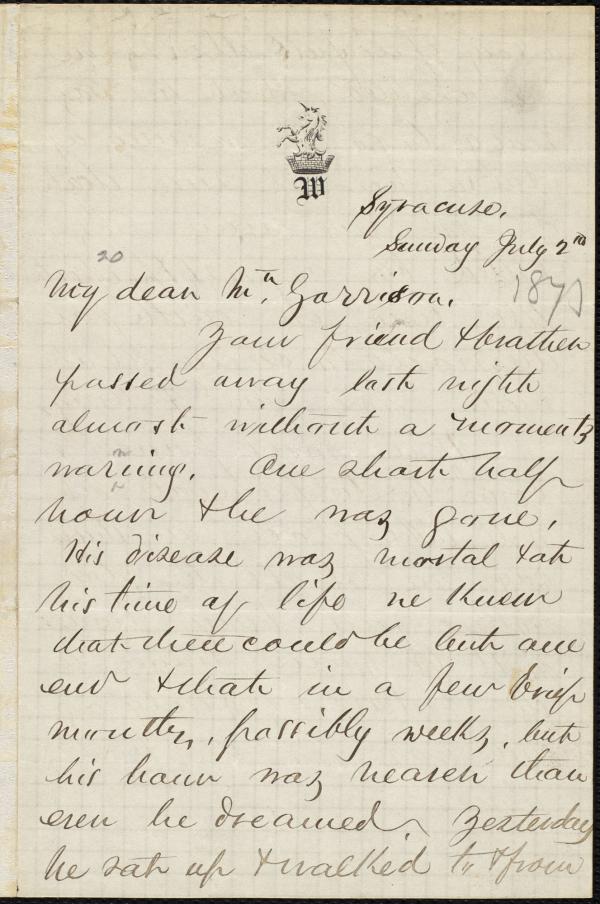 W
Syracuse.
Sunday July 2nd
1871
20
My dear Mr. Garrison.
Your friend & brother
passed away last night
almost without a moments
warning. One short half
hour & he was gone.
His disease was mortal & at
his time of life we knew
that there could be but one
end & that in a few brief
months, possibly weeks, but
his hour was nearer than
even he dreamed. Yesterday
he sat up & walked to & from